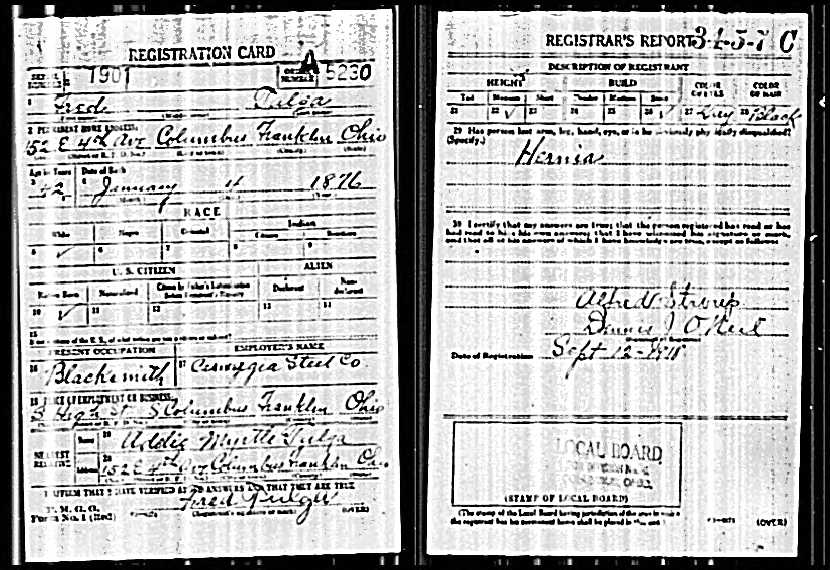 REGISTRATION CARD
SERIAL NUMBER 1901
A
ORDER NUMBER 5230
1 Fred Tulga
2 PERMANENT HOME ADDRESS:
152 E 4th Ave Columbus Franklin Ohio
Age in Years Date of Birth
3 42 4 January 4 1876
RACE
White Negro Oriental Indian
Citizen
5 ✓ 6 7 8 9
U. S. CITIZEN ALIEN
Native Born Naturalized Declarant Non-declarant
10 ✓ 11 12 13 14
15
PRESENT OCCUPATION EMPLOYER'S NAME
16 Blacksmith 17 Steel Co
18 PLACE OF EMPLOYMENT OR BUSINESS:
S High St S Columbus Franklin Ohio
NEAREST RELATIVE Name 19 Addie Myrtle Tulga
Address 20 152 E 4th Ave Columbus Franklin Ohio
I AFFIRM THAT I HAVE VERIFIED ABOVE ANSWERS AND THAT THEY ARE TRUE
Fred Tulger
P. M. G. O.
Form No. 1 (Red) (Registrant's signature or mark) (OVER)
REGISTRAR'S REPORT 34-5-7 C
DESCRIPTION OF REGISTRANT
HEIGHT BUILD COLOR OF EYES COLOR OF HAIR
Tall Medium Short Slender Medium Stout
21 22 ✓ 23 24 25 26 ✓ 27 28 Black
29 Has person lost arm, leg, hand, eye, or is he obviously physically disqualified?
(Specify.)
Hernia
30 I certify that my answers are true; that the person registered has read or has
had read to him his own answers; that I have witnessed his signature or mark,
and that all of his answers of which I have knowledge are true, except as follows:
Alfred
O'Neil
Date of Registration Sept 12-1918
LOCAL BOARD
(STAMP OF LOCAL BOARD)
(The stamp of the Local Board having jurisdiction of the area in which
the registrant has his permanent home shall be placed in this box.)
(OVER)